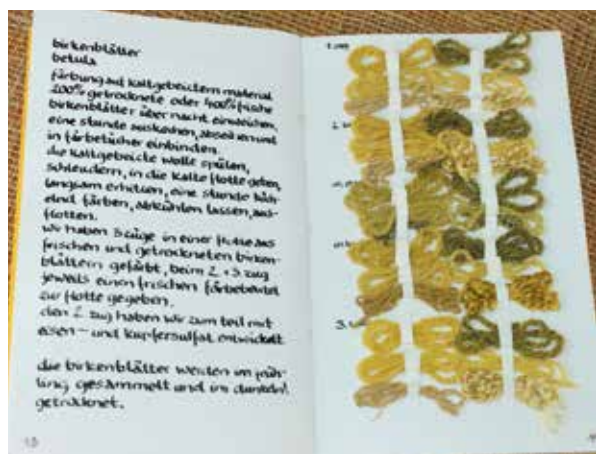 birkenblätter
betula
färbung auf kaltgebeiztem material
200% getrocknete oder 400% frische
birkenblätter über nacht einweichen,
eine stunde auskochen, abseihen und
in färbetücher einbinden.
die kaltgebeizte wolle spülen,
schleudern, in die kalte flotte geben,
langsam erhitzen, eine stunde
färben, abkühlen lassen, aus-
flotten.
wir haben 3 züge in einer flotte aus
frischen und getrockneten birken-
blättern gefärbt, beim 2. + 3. zug
jeweils einen frischen färbebeutel
zur flotte gegeben.
den 2. zug haben wir zum teil mit
eisen- und kupfersulfat entwickelt
die birkenblätter werden im früh-
ling gesammelt und im dunkeln
getrocknet.
1. zug
3.